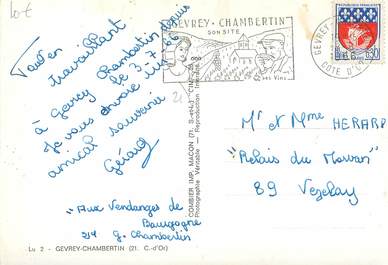 10€
Tout en
travaillant
à Gevrey Chambertin depuis
le 3-7-66
Je vous envoie un
amical souvenir
Gérard
"Aux Vendanges de
Bourgogne
214 G. Chambertin
Lu 2 - GEVREY-CHAMBERTIN (21. C.-d'Or)
COMBIER IMP. MACON (71. S.-et-L.)
Photographie Véritable - Reproduction
GEVREY-CHAMBERTIN
SON SITE
SES VINS
GEVREY
COTE D'OR
REPUBLIQUE FRANÇAISE
PARIS
0,30
21
Mr et Mme HERARD
"Relais du Morvan"
89 Vezelay